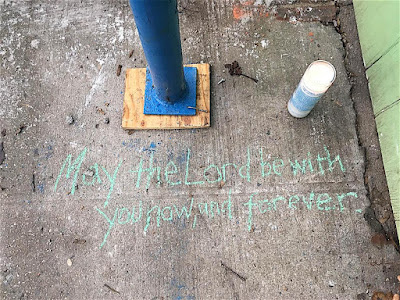 May the Lord be with
you now, and forever.